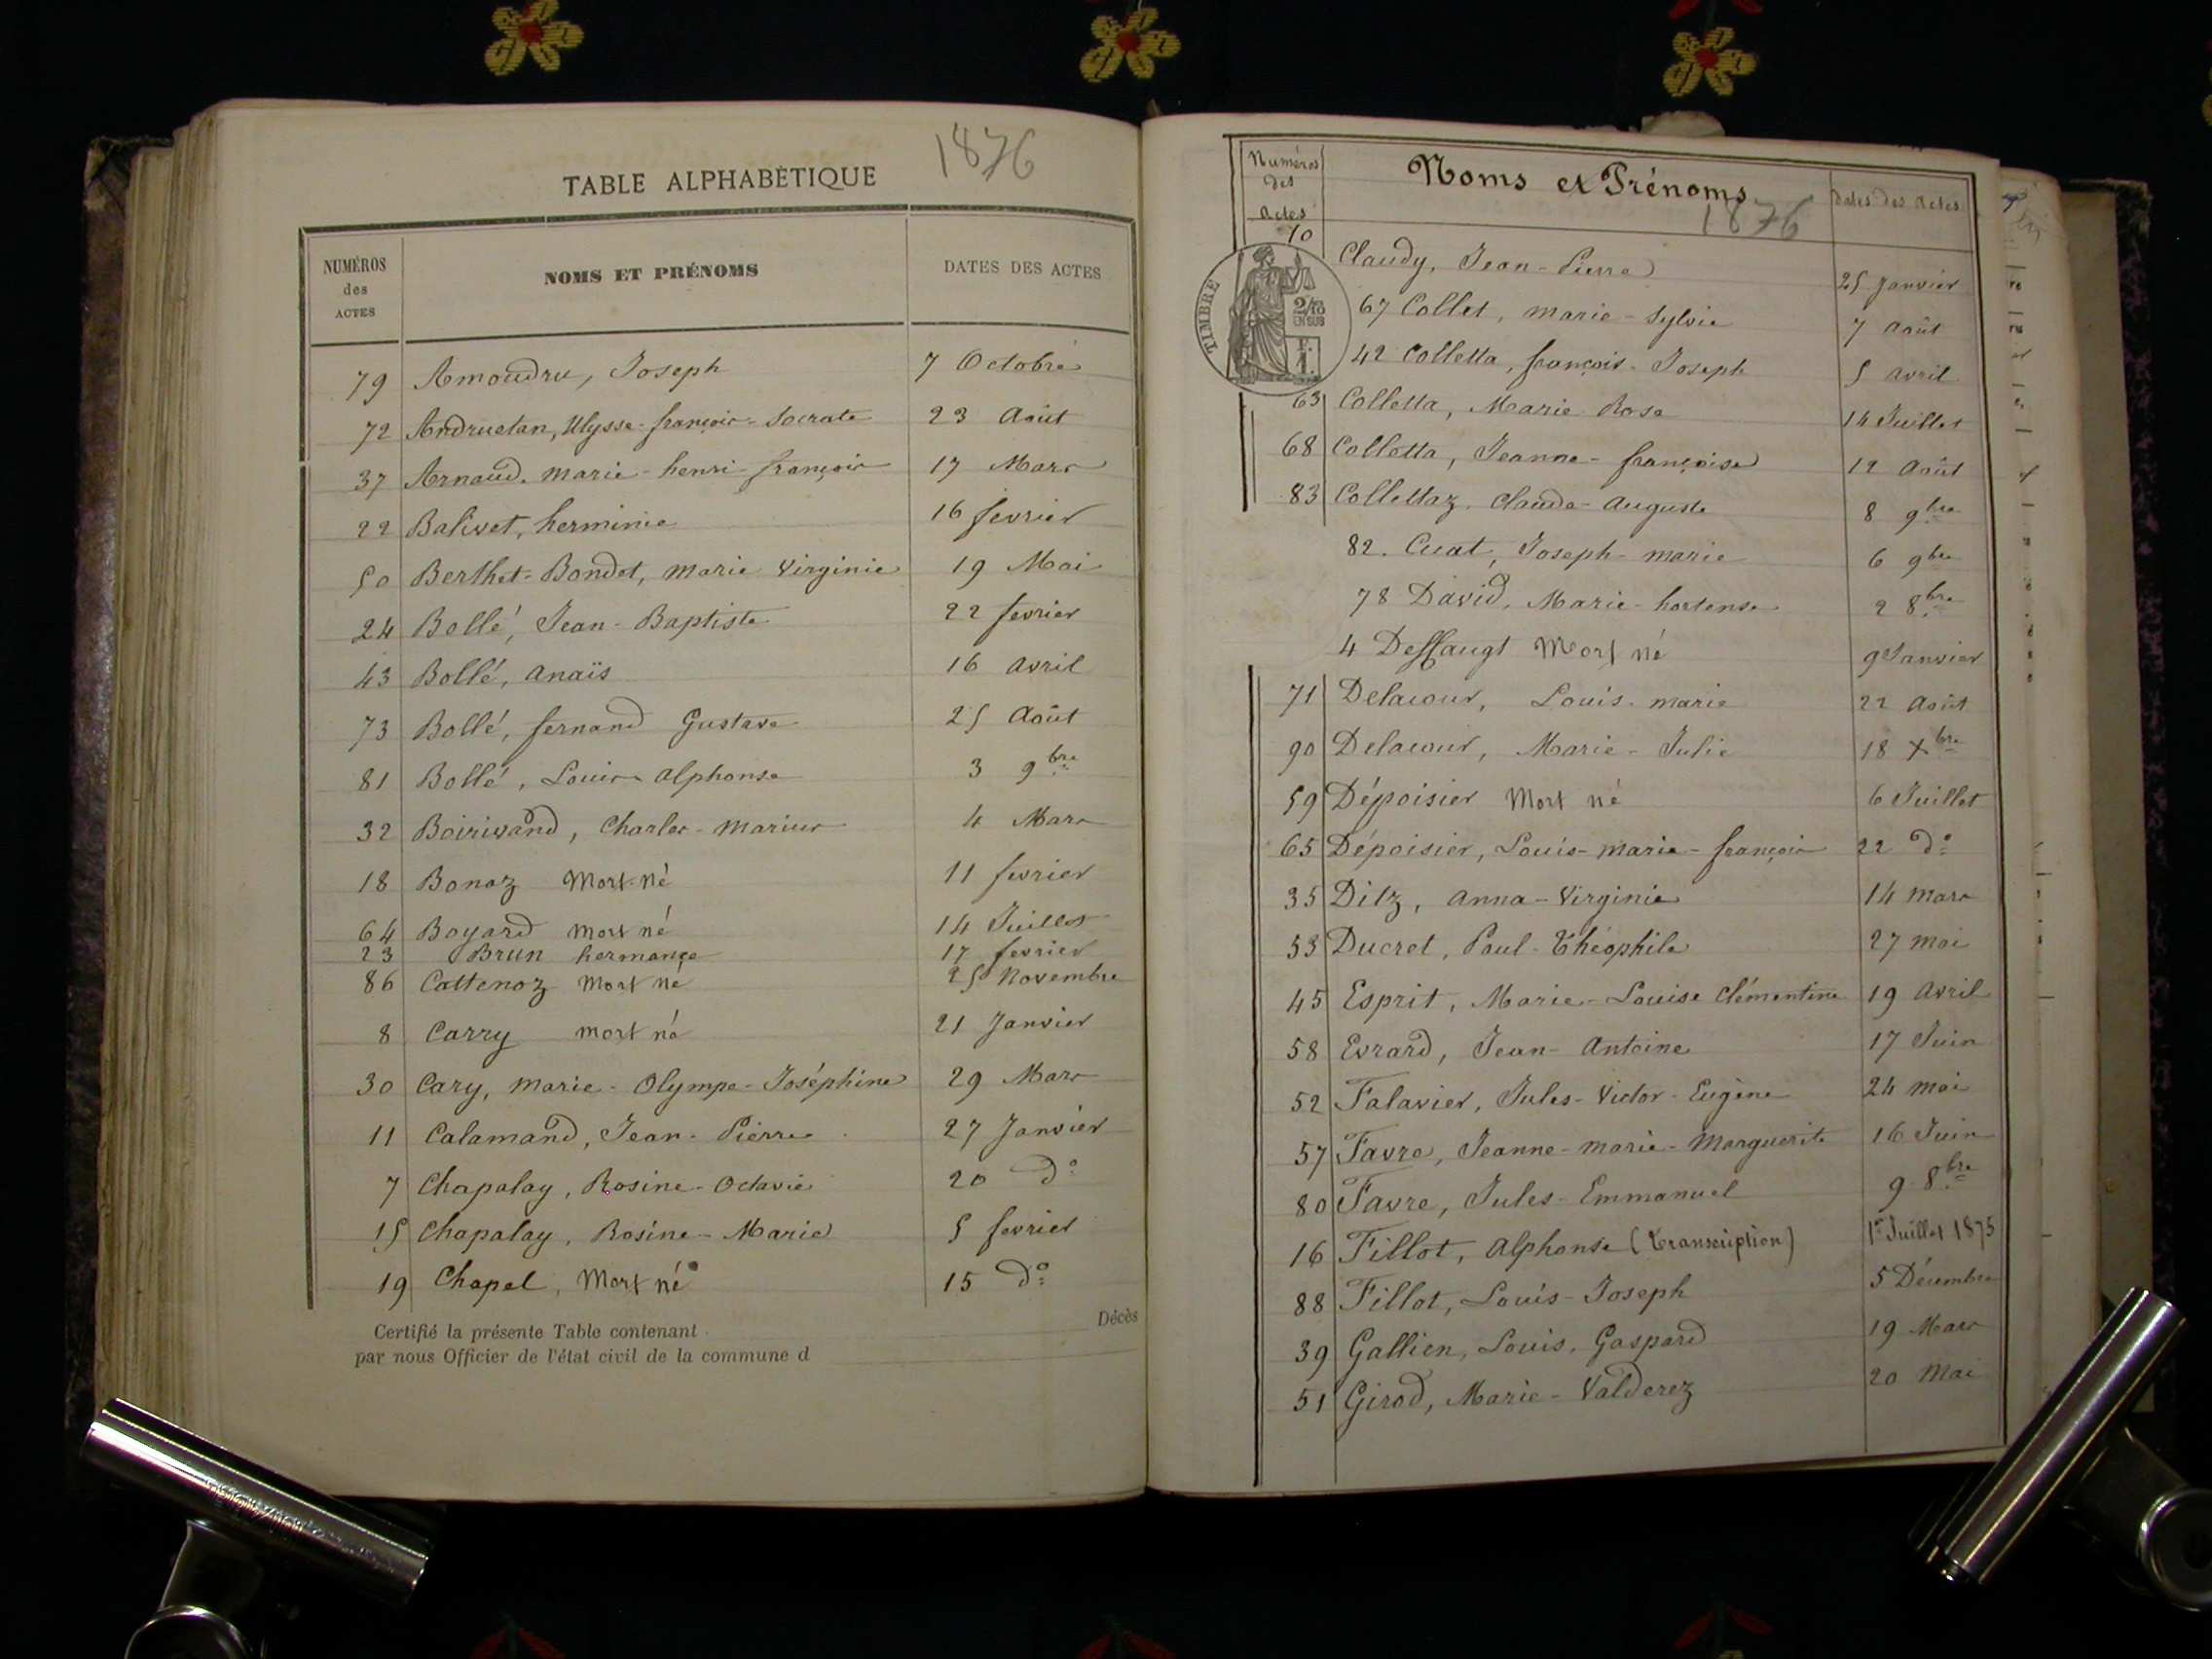 1876
TABLE ALPHABÉTIQUE
NUMÉROS des ACTES NOMS ET PRÉNOMS DATES DES ACTES
79 Amoudru, Joseph 7 Octobre
72 Andruetan, Ulysse-françois-Socrate 23 Août
37 Arnaud, marie-henri-françois 17 Mars
22 Balivet, herminie 16 fevrier
50 Berthet-Bondet, marie Virginie 19 Mai
24 Bollé, Jean-Baptiste 22 fevrier
43 Bollé, anaïs 16 avril
73 Bollé, fernand Gustave 25 Août
81 Bollé, Louis alphonse 3 9bre
32 Boirivand, Charles-marius 4 Mars
18 Bonoz Mort-né 11 fevrier
64 Boyard mort né 14 Juillet
23 Brun hermance 17 fevrier
86 Cattenoz Mort né 25 Novembre
8 Carry mort né 21 Janvier
30 Cary, marie-Olympe-Joséphine 29 Mars
11 Calamand, Jean-Pierre 27 Janvier
7 Chapalay, Rosine-Octavie 20 do
15 Chapalay, Rosine-Marie 5 fevrier
19 Chapel, Mort né 15 do
Certifié la présente Table contenant Décès
par nous Officier de l'état civil de la commune d
Numéros des Actes Noms et Prénoms Dates des Actes
1876
TIMBRE
2/10 EN SUS
F. 1.
10 Claudy, Jean-Pierre 25 Janvier
67 Collet, marie-Sylvie 7 août
42 Colletta, françois-Joseph 5 avril
63 Colletta, Marie Rose 14 Juillet
68 Colletta, Jeanne-françoise 12 Août
83 Collettaz, Claude-Auguste 8 9bre
82. Cuat, Joseph-marie 6 9bre
78 David, Marie-hortense 2 8bre
4 Mort né 9 Janvier
71 Delacour, Louis-marie 22 Août
90 Delacour, Marie-Julie 18 Xbre
59 Dépoisier Mort né 6 Juillet
65 Dépoisier, Louis-marie-françois 22 do
35 Dilz, anna-Virginie 14 mars
53 Ducret, Paul-Théophile 27 mai
45 Esprit, Marie-Louise Clémentine 19 Avril
58 Evrard, Jean-Antoine 17 Juin
52 Falavier, Jules-Victor-Eugène 24 mai
57 Favre, Jeanne-marie-Marguerite 16 Juin
80 Favre, Jules-Emmanuel 9 8bre
16 Fillot, Alphonse (transcription) 1er Juillet 1875
88 Fillot, Louis-Joseph 5 Décembre
39 Gallien, Louis, Gaspard 19 Mars
51 Girod, Marie-Valderez 20 Mai